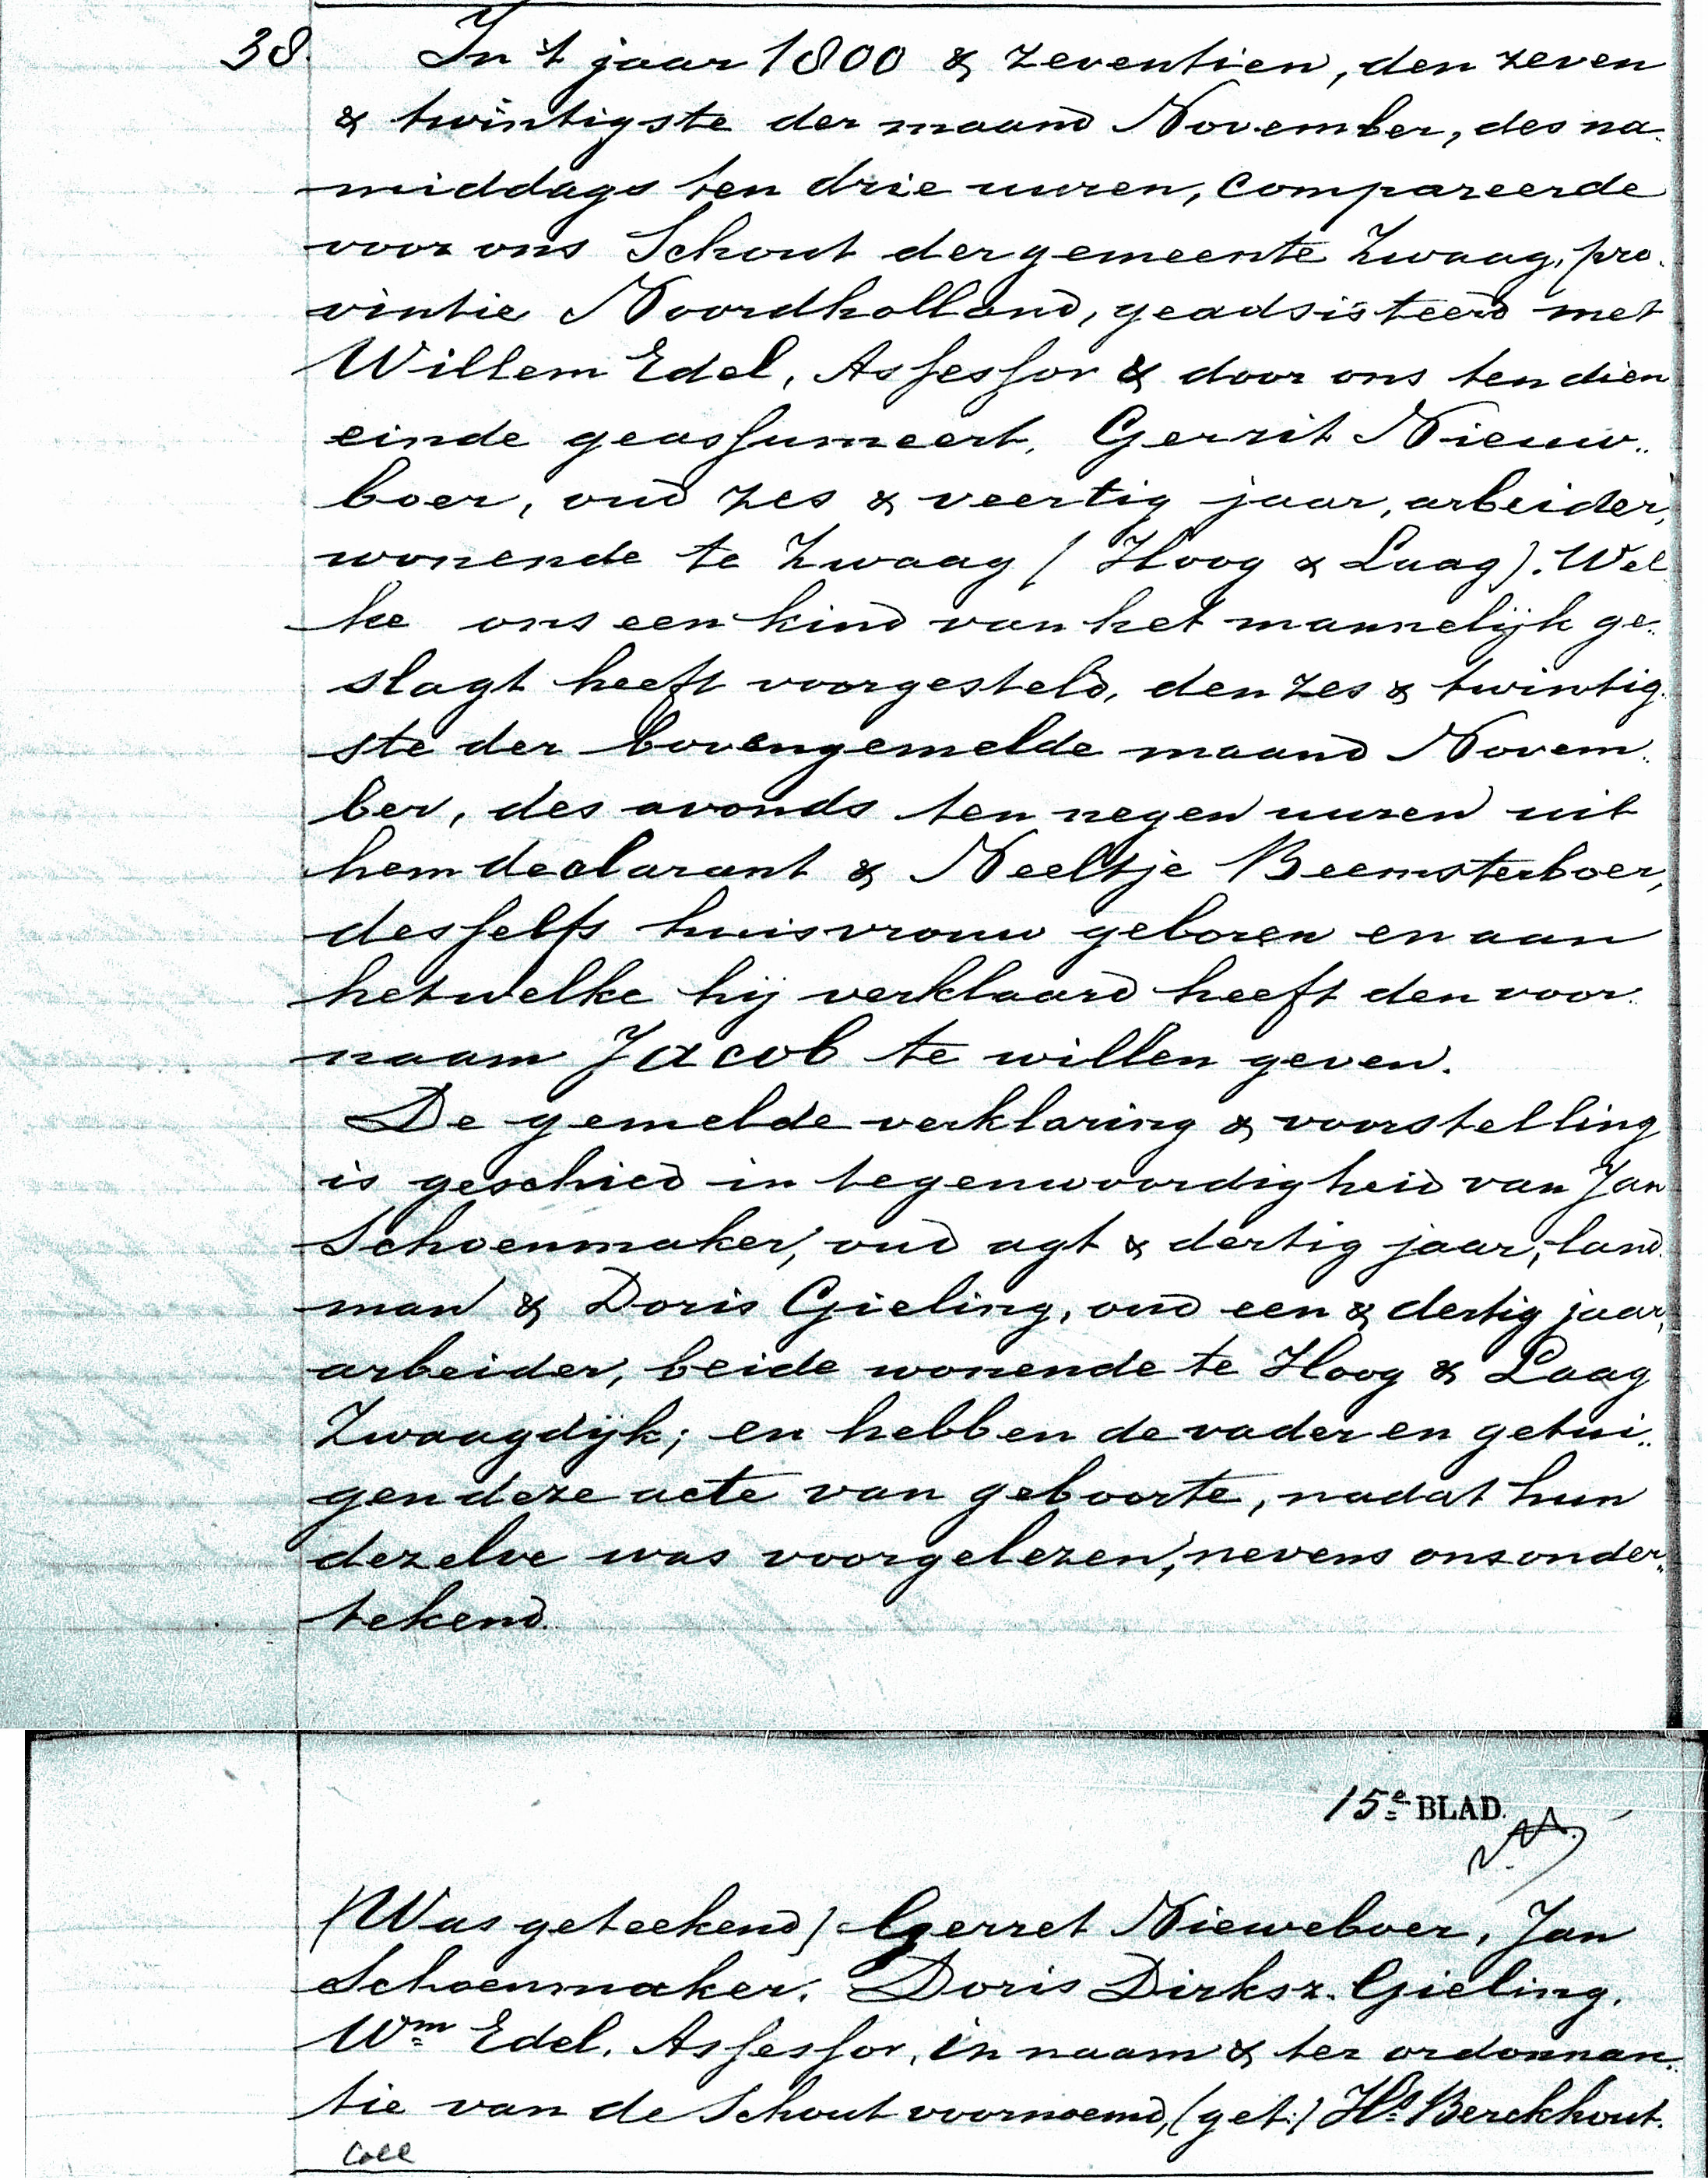 38. In 't jaar 1800 & zeventien, den zeven
& twintigste der maand November, des na-
middags ten drie uuren, compareerde
voor ons Schout der gemeente Zwaag, pro-
vintie Noordholland, geadsisteerd met
Willem Edel, Assessor & door ons ten dien
einde geassumeert, Gerrit Nieuw-
boer, oud zes & veertig jaar, arbeider,
wonende te Zwaag (Hoog & Laag). Wel-
ke ons een kind van het mannelijk ge-
slagt heeft voorgesteld, den zes & twintig-
ste der bovengemelde maand Novem-
ber, des avonds ten negen uuren uit
hem declarant & Neeltje Beemsterboer,
desselfs huisvrouw geboren en aan
hetwelke hij verklaard heeft den voor-
naam Jacob te willen geven.
De gemelde verklaring & voorstelling
is geschied in tegenwoordigheid van Jan
Schoenmaker, oud agt & dertig jaar, land-
man & Doris Gieling, oud een & dertig jaar,
arbeider, beide wonende te Hoog & Laag
Zwaagdijk; en hebben de vader en getui-
gen deze acte van geboorte, nadat hun
dezelve was voorgelezen, nevens ons onder-
tekend.
15e BLAD.
(Was geteekend) Gerret Nieweboer, Jan
Schoenmaker. Doris Dirksz. Gieling.
Wm Edel. Assessor, in naam & ter ordonnan-
tie van de Schout voornoemd, (get.) Hs Berckhout.
Coll